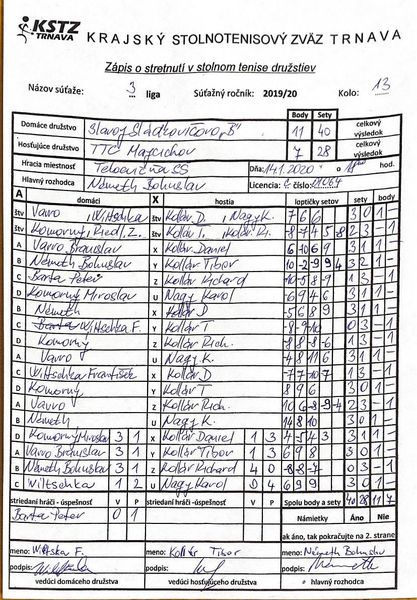 KSTZ
TRNAVA
KRAJSKÝ STOLNOTENISOVÝ ZVÄZ TRNAVA
Zápis o stretnutí v stolnom tenise družstiev
Názov súťaže: 3 liga Súťažný ročník: 2019/20 Kolo: 13
Body Sety
Domáce družstvo Slavoj Sládkovičovo "B" 11 40 celkový výsledok
Hosťujúce družstvo TTC Majcichov 7 28 celkový výsledok
Hracia miestnosť Telocvičňa SŠ Dňa: 14.1.2020 o hod.
Hlavný rozhodca Németh Bohuslav Licencia č. číslo: 01064
A domáci X hostia loptičky setov sety body
štv Vavro Wittschka štv Kollár D. Nagy K. 7 6 6 3 0 1 -
štv Komorný, Riedl Z. štv Kollár T. Kollár R. -8 -7 4 5 8 2 3 - 1
A Vavro Branislav X Kollár Daniel 6 -10 6 9 3 1 1 -
B Németh Bohuslav Y Kollár Tibor 10 -2 -9 9 4 3 2 1 -
C Barta Peter Z Kollár Richard -10 -5 8 -9 1 3 - 1
D Komorný Miroslav U Nagy Karol 6 -9 4 6 3 1 1 -
B Németh X Kollár D. -5 6 8 9 3 1 1 -
C Barta Wittschka F. Y Kollár T. -8 -9 -10 0 3 - 1
D Komorný Z Kollár Rich. 1 3 - 1
A Vavro U Nagy K. -4 8 11 6 3 1 1 -
C Wittschka František X Kollár D -7 -7 10 -7 1 3 - 1
D Komorný Y Kollár T 8 9 6 3 0 1 -
A Vavro Z Kollár Rich. 10 6 -8 -9 -4 2 3 - 1
B Németh U Nagy K. 14 8 10 3 0 1 -
D Komorný Miroslav 3 1 X Kollár Daniel 1 3 4 -5 4 3 3 1 1 -
A Vavro Branislav 3 1 Y Kollár Tibor 1 3 6 9 8 3 0 1 -
B Németh Bohuslav 3 1 Z Kollár Richard 4 0 -8 -8 -7 0 3 - 1
C Wittschka 1 2 U Nagy Karol 0 4 6 9 9 3 0 1 -
striedaní hráči - úspešnosť V P striedaní hráči - úspešnosť V P Spolu body a sety 40 28 11 7
Barta Peter 0 1 Námietky Áno Nie
ak áno, tak pokračujte na 2. strane
meno: Wittska F. meno: Kollár Tibor meno: Németh Bohuslav
podpis: podpis: podpis:
vedúci domáceho družstva vedúci hosťujúceho družstva hlavný rozhodca